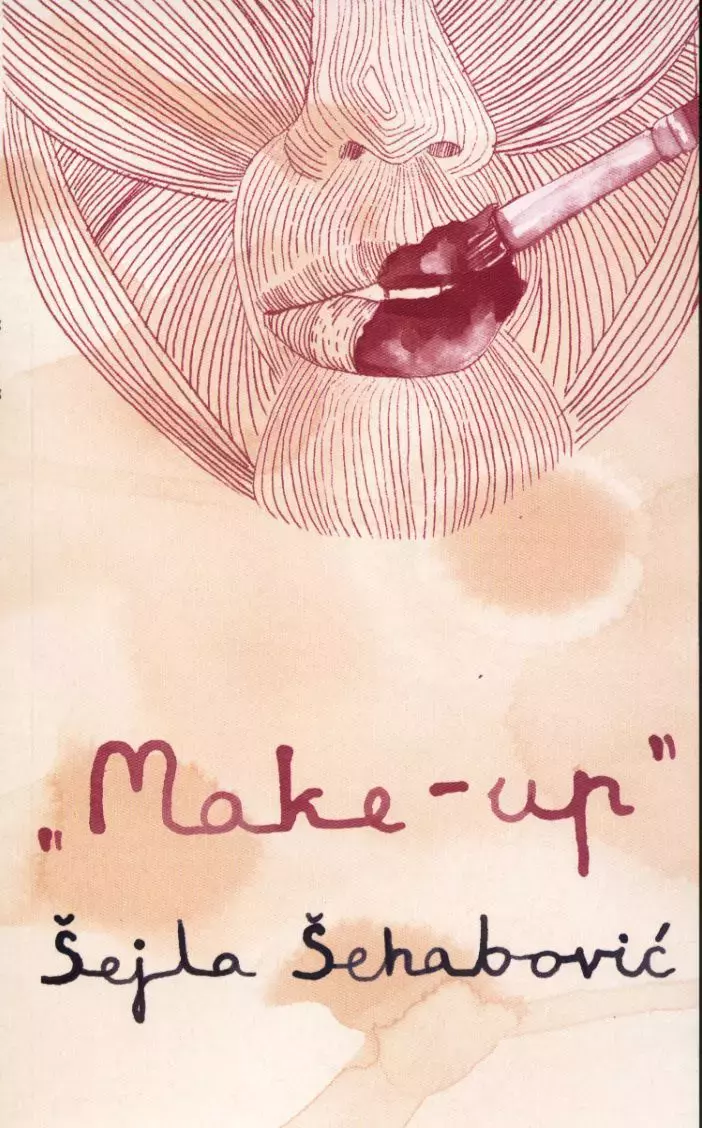 „Make-up"
Šejla Šehabović